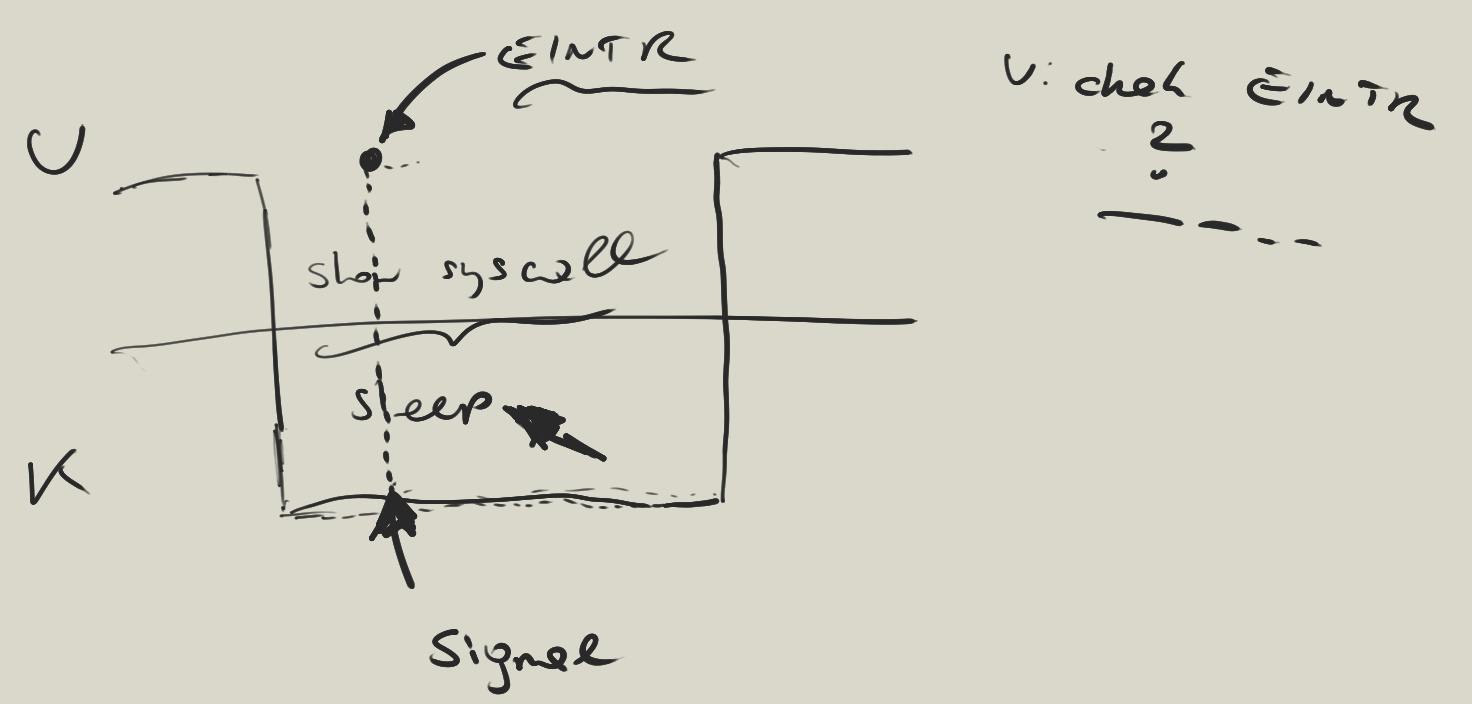 EINTR
U: chek EINTR
?
U
slow syscall
sleep
K
Signal